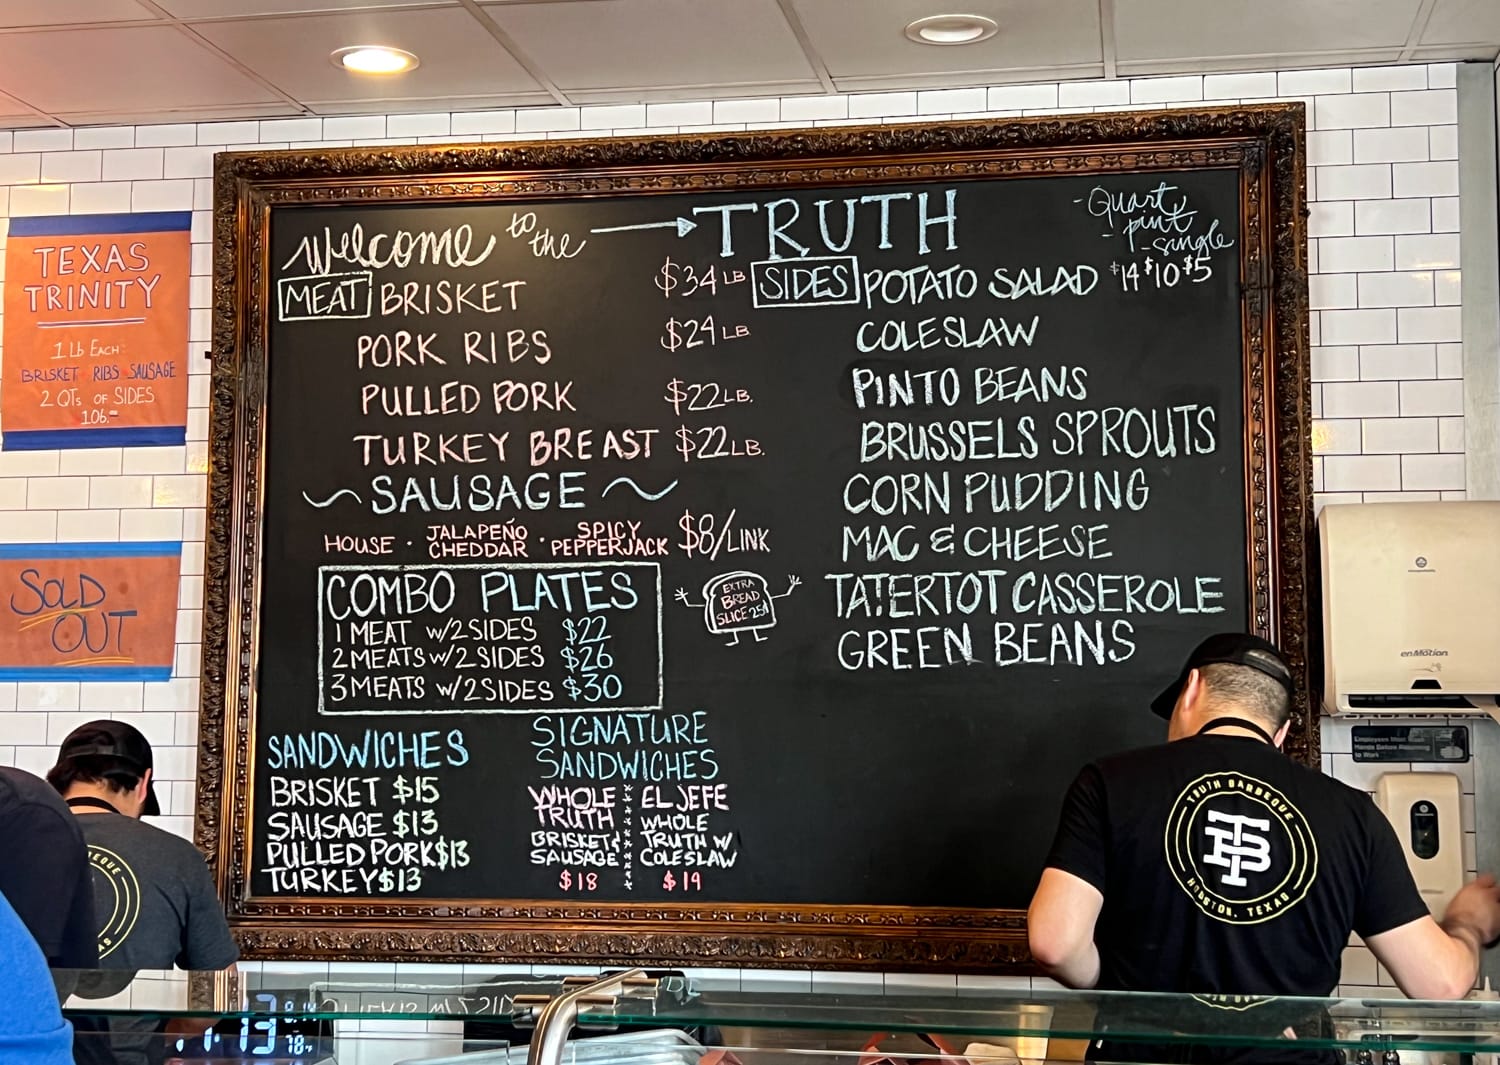 TEXAS
TRINITY
1 Lb EACH:
BRISKET RIBS SAUSAGE
2 QTs OF SIDES
106.-
SOLD
OUT
Welcome to the → TRUTH
MEAT BRISKET $34 LB
PORK RIBS $24 LB
PULLED PORK $22 LB.
TURKEY BREAST $22 LB.
~ SAUSAGE ~
HOUSE · JALAPEÑO CHEDDAR · SPICY PEPPERJACK $8/LINK
COMBO PLATES
1 MEAT W/2 SIDES $22
2 MEATS W/2 SIDES $26
3 MEATS W/2 SIDES $30
EXTRA
BREAD
SLICE 25¢
SANDWICHES
BRISKET $15
SAUSAGE $13
PULLED PORK $13
TURKEY $13
SIGNATURE
SANDWICHES
WHOLE
TRUTH
BRISKET &
SAUSAGE
$18
EL JEFE
WHOLE
TRUTH W/
COLESLAW
$19
- Quart
- pint
- single
SIDES POTATO SALAD $14 $10 $5
COLESLAW
PINTO BEANS
BRUSSELS SPROUTS
CORN PUDDING
MAC & CHEESE
TATERTOT CASSEROLE
GREEN BEANS
enMotion
Employees Must
Hands Before Returning
to Work
TRUTH BARBEQUE
TB
HOUSTON, TEXAS
BARBEQUE
AS
1:13
78